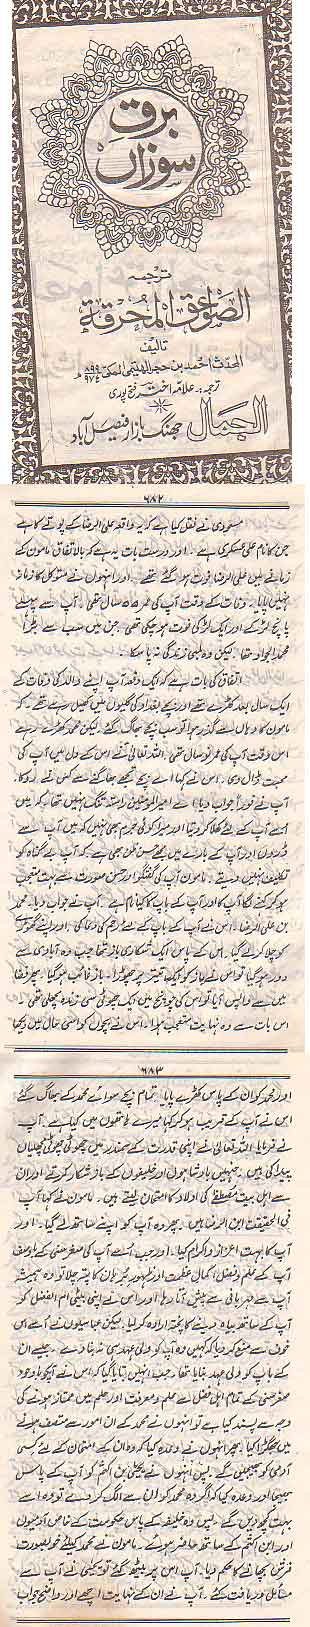 برق
سوزاں
ترجمہ
الصواعق المحرقة
تالیف
المحدث احمد بن حجر الہیتمی المکی ۸۹۹ ۹۷۴ھ
ترجمہ: علامہ اختر فتح پوری
الجمال جھنگ بازار فیصل آباد
۶۸۲
مسعودی نے نقل کیا ہے کہ یہ واقعہ علی الرضا کے پوتے کا ہے
جن کا نام علی عسکری ہے۔ اور درست بات یہ ہے کہ بالاتفاق مامون کے
زمانے میں علی الرضا فوت ہو گئے تھے اور انہوں نے متوکل کا زمانہ
نہیں پایا۔ وفات کے وقت آپ کی عمر ۵۵ سال تھی۔ آپ سے پہلے
پانچ لڑکے اور ایک لڑکی فوت ہو چکی تھی جن میں سب سے بڑا
محمد الجواد تھا لیکن وہ لمبی زندگی نہ پا سکا
اتفاق کی بات ہے کہ ایک دفعہ آپ اپنے والد کی وفات کے
ایک سال بعد کھڑے تھے اور بچے بغداد کی گلیوں میں کھیل رہے تھے۔ کہ
مامون کا وہاں سے گذر ہوا تو سب بچے بھاگ گئے لیکن محمد کھڑے رہے
اس وقت آپ کی عمر نو سال تھی۔ اللہ تعالیٰ نے اس کے دل میں آپ کی
محبت ڈال دی۔ اس نے کہا اے بچے تجھے بھاگنے سے کس نے روکا۔
آپ نے فوراً جواب دیا، اے امیر المومنین راستہ تنگ نہیں تھا کہ میں
اسے آپ کے لئے کھلا کر دیتا اور میرا کوئی جرم بھی نہیں کہ میں آپ سے
ڈروں اور آپ کے بارے میں مجھے حسن ظن بھی ہے کہ آپ بے گناہ کو
تکلیف نہیں دیتے۔ مامون آپ کی گفتگو اور حسن صورت سے بہت متعجب
ہو کر کہنے لگا آپ کا اور آپ کے باپ کا کیا نام ہے۔ آپ نے جواب دیا۔ محمد
بن علی الرضا۔ اس نے آپ کے باپ کے لئے رحم کی دعا کی۔ اور اپنے گھوڑے
کو چلا کر لے گیا۔ اس کے پاس ایک شکاری باز تھا جب وہ آبادی سے
دور ہو گیا تو اس نے باز کو ایک تیتر پر چھوڑا۔ باز غائب ہو گیا۔ پھر فضا
میں سے واپس آیا تو اس کی چونچ میں ایک چھوٹی سی زندہ مچھلی تھی۔
اس بات سے وہ نہایت متعجب ہوا۔ اس نے بچوں کو اسی حال میں دیکھا
۶۸۳
اور محمد کو ان کے پاس کھڑے پایا۔ تمام بچے سوائے محمد کے بھاگ گئے
اس نے آپ کے قریب ہو کر کہا میرے ہاتھوں میں کیا ہے۔ آپ
نے فرمایا اللہ تعالیٰ نے اپنی قدرت کے سمندر میں چھوٹی چھوٹی مچھلیاں
پیدا کی ہیں۔ جنہیں بادشاہوں اور خلیفوں کے باز شکار کرتے اور ان
سے اہل بیت مصطفےٰ کی اولاد کا امتحان لیتے ہیں۔ مامون نے کہا آپ
فی الحقیقت ابن الرضا ہیں۔ پھر وہ آپ کو اپنے ساتھ لے گیا۔ اور
آپ کا بہت اعزاز و اکرام کیا۔ اور جب اسے آپ کی صغر سنی کے باوصف
آپ کے علم و فضل، کمال عظمت اور ظہور برہان کا پتہ چلا تو وہ ہمیشہ
آپ سے مہربانی سے پیش آتا رہا۔ اور اس نے اپنی بیٹی ام الفضل کو
آپ کے ساتھ بیاہ دینے کا پختہ ارادہ کر لیا۔ لیکن عباسیوں نے اسے اس
خوف سے منع کر دیا کہ کہیں وہ آپ کو ولی عہد ہی نہ بنا دے۔ جیسے ان
کے باپ کو ولی عہد بنایا تھا۔ جب انہیں بتایا گیا کہ اس نے آپکو باوجود
صغر سنی کے تمام اہل فضل سے علم و معرفت اور حلم میں ممتاز ہونے کی
وجہ سے پسند کیا ہے تو انہوں نے محمد کے ان امور سے متصف ہونے
میں جھگڑا کیا۔ پھر انہوں نے وعدہ کیا کہ وہ ان کے امتحان کے لئے کسی
آدمی کو بھیجیں گے۔ پس انہوں نے یحییٰ بن اکثم کو آپ کے پاس
بھیجا۔ اور وعدہ کیا کہ اگر وہ محمد کو ان سے الگ کر دے تو وہ اسے
بہت کچھ دیں گے۔ پس وہ خلیفہ کے پاس حکومت کے خاص آدمیوں
اور ابن اکثم کے ساتھ حاضر ہوئے۔ مامون نے محمد کیلئے خوبصورت
فرش بچھانے کا حکم دیا۔ آپ اس پر بیٹھ گئے تو یحییٰ نے آپ سے
مسائل دریافت کئے۔ آپ نے ان کے نہایت اچھے اور واضح جواب